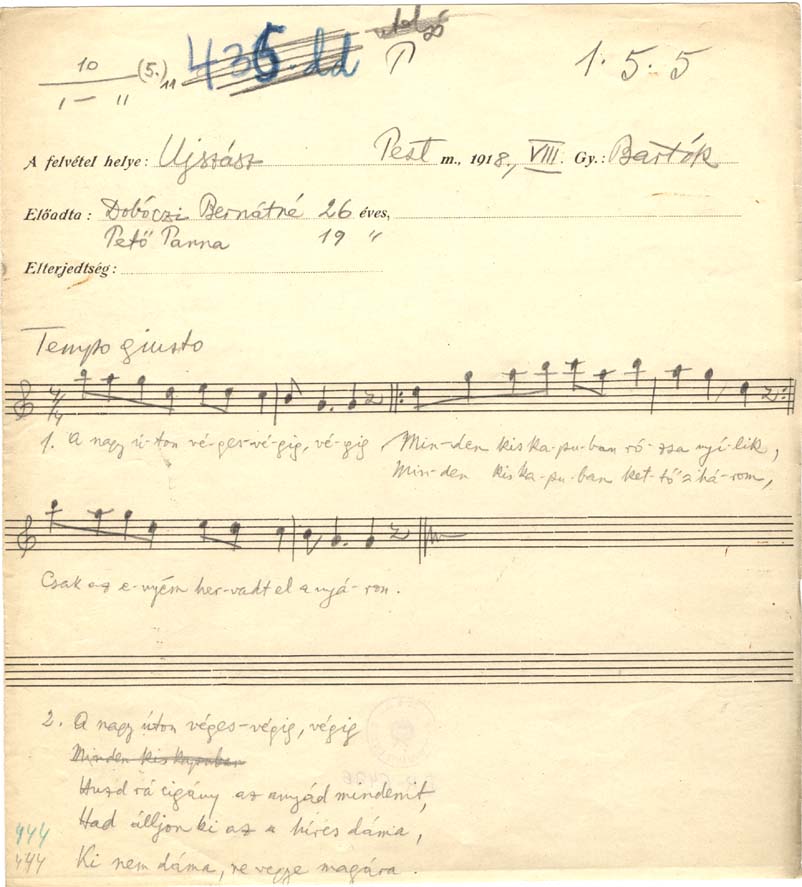 10 (5.)
I – II
436.dd
P
1. 5. 5
A felvétel helye: Ujszász Pest m., 1918., VIII. Gy.: Bartók
Előadta: Dobóczi Bernátné 26 éves,
Pető Panna 19 "
Elterjedtség:
Tempo giusto
4/4
1. A nagy ú-ton vé-ges-vé-gig, vé-gig, Min-den kis ka-pu-ban ró-zsa nyí-lik,
Min-den kis ka-pu-ban ket-tő z há-rom,
Csak az e-nyém her-vadt el a nyá-ron.
2. A nagy úton véges-végig, végig
Minden kis kapuban
Huzd rá cigány az anyád mindenit,
Had álljon ki az a híres dáma,
Ki nem dáma, ne vegye magára.
444
444